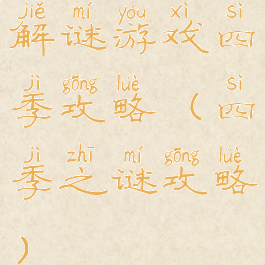 jiě mí yóu xì sì
解谜游戏四
jì gōng lüè sì
季攻略(四
jì zhī mí gōng lüè
季之谜攻略
)